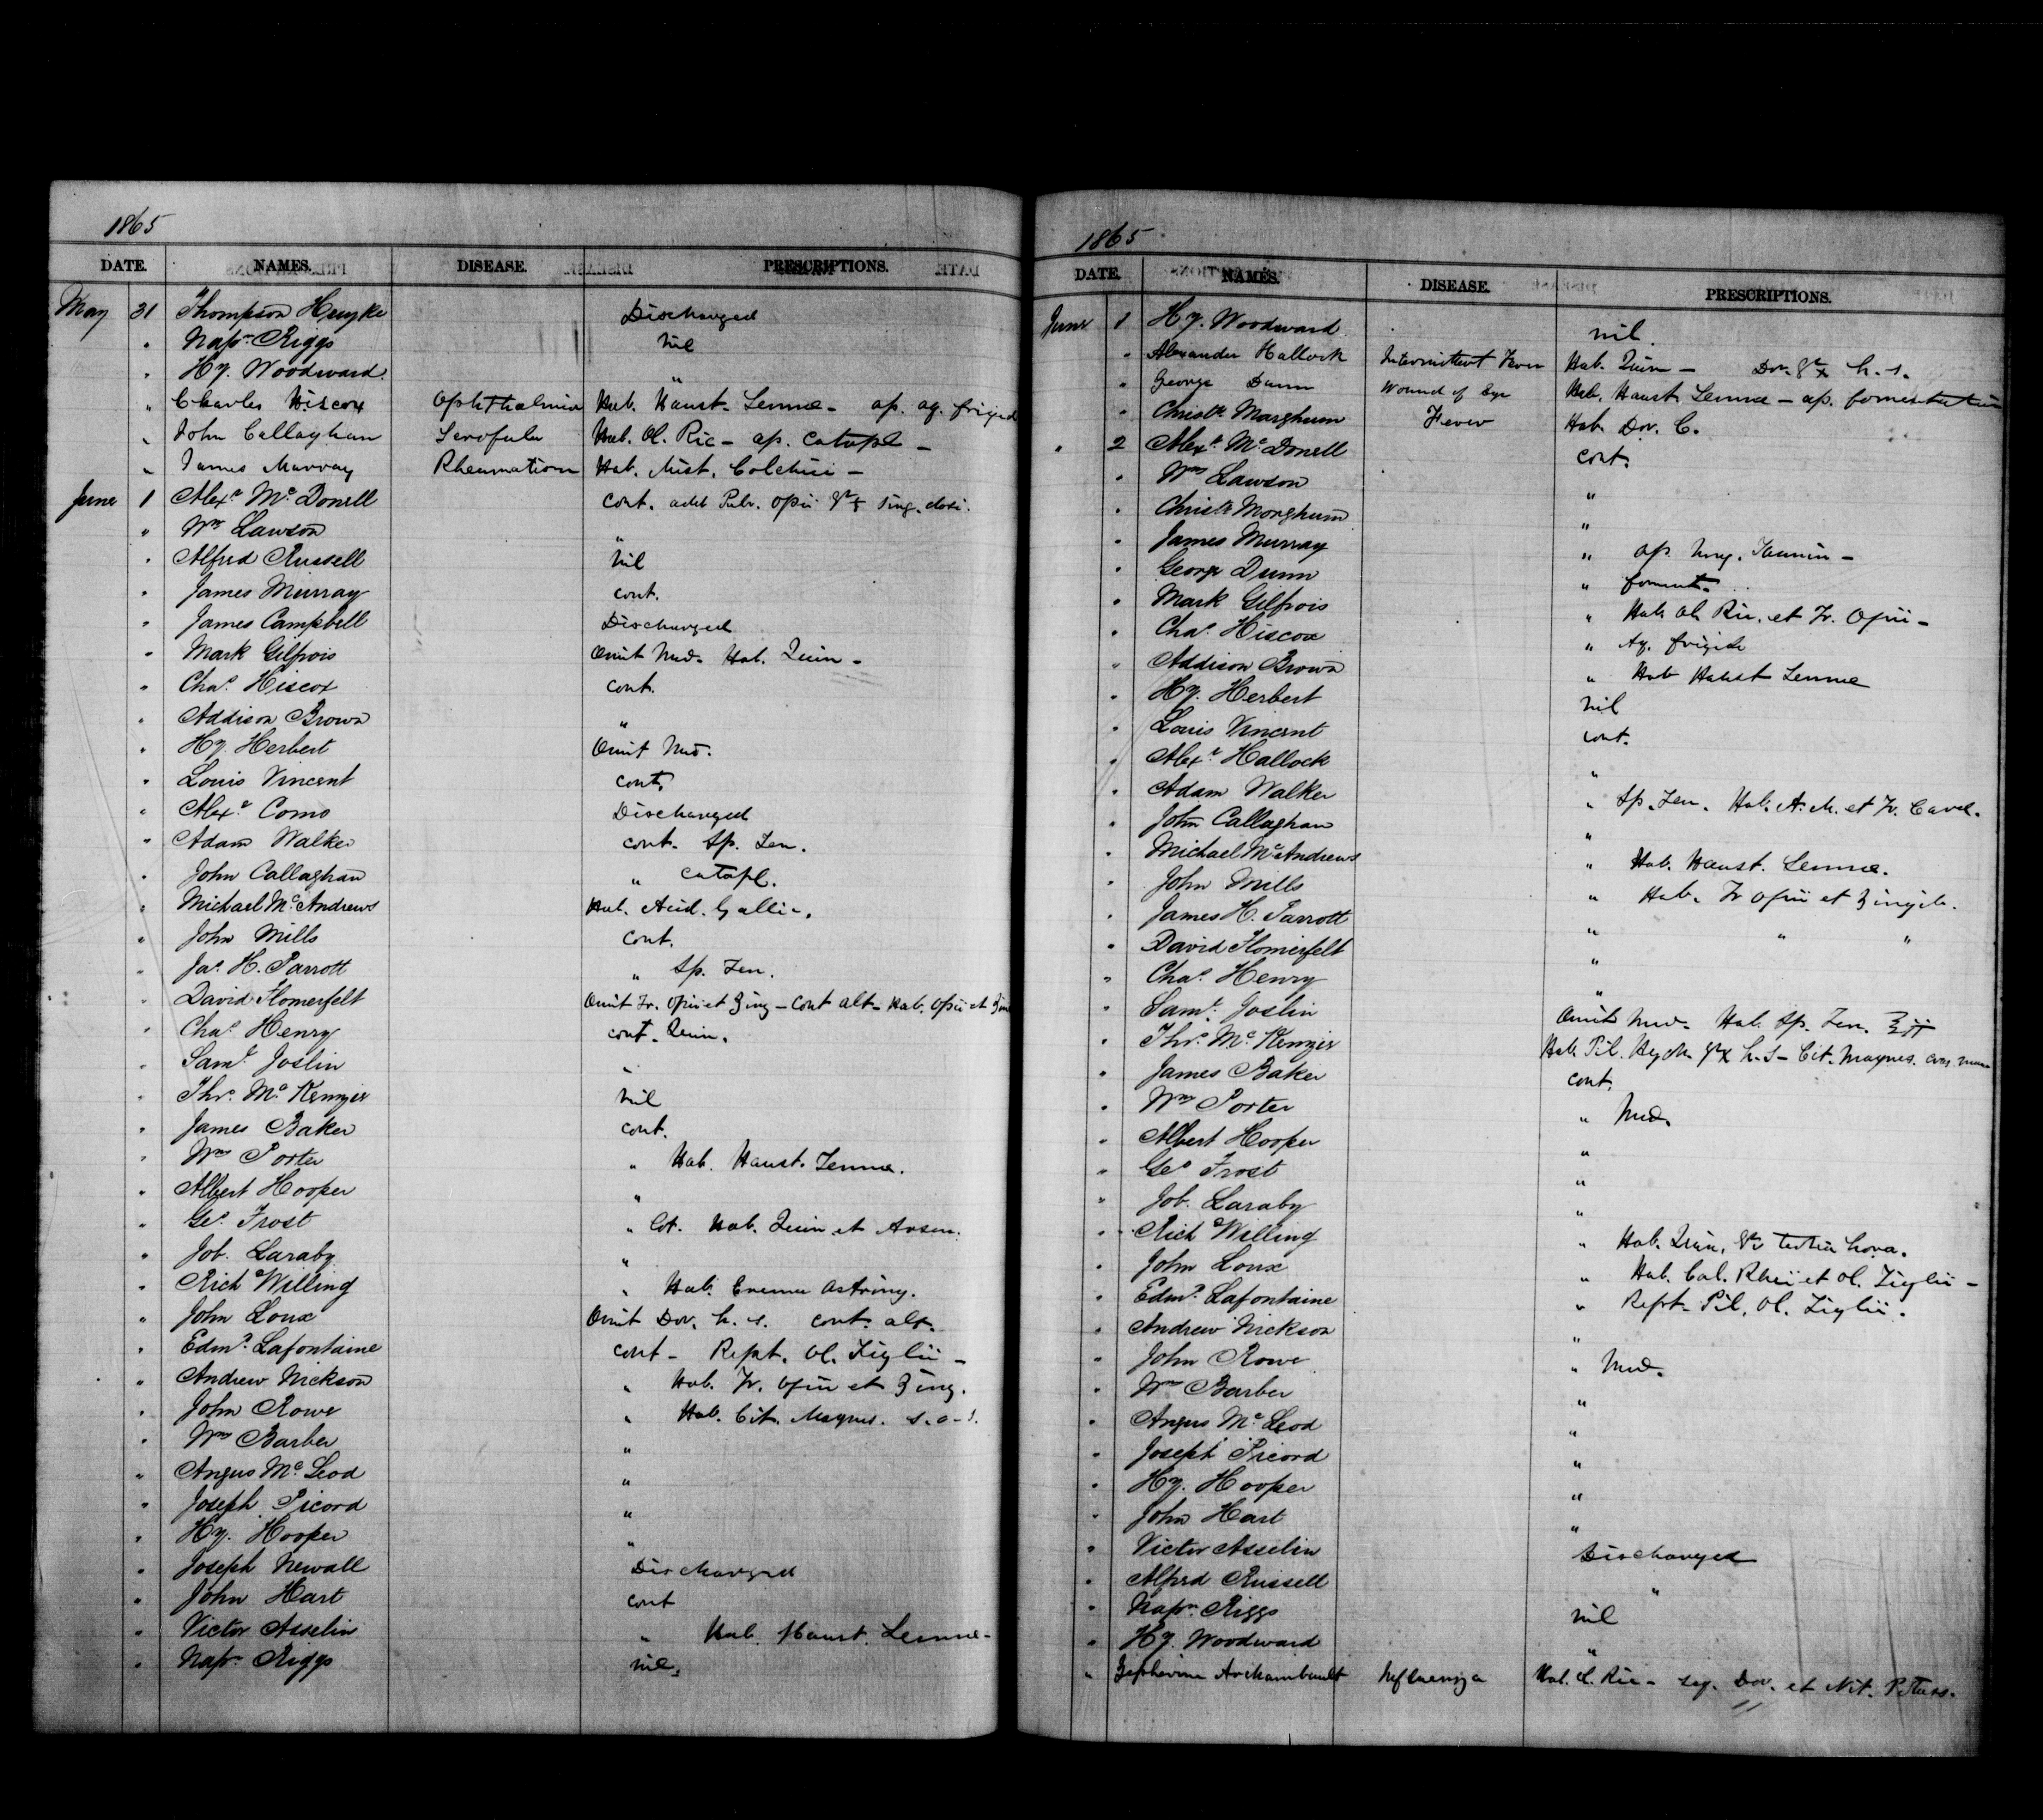 1865
DATE. NAMES. DISEASE. PRESCRIPTIONS.
May 31 Thompson Heuyke Discharged
" Nap.n Riggs nil
" Hy. Woodward "
" Charles Hiscox Ophthalmia Hab. Haust. Sennae - ap. aq. frigid
" John Callaghan Scrofula Hab. Ol. Ric - ap. Catapl -
" James Murray Rheumatism Hab. Mist. Colchici -
June 1 Alexr McDonell cont. add Pulv. opii gr sing. dosi.
" Wm Lawson "
" Alfred Russell nil
" James Murray cont.
" James Campbell Discharged
" Mark Gilfrois Omit Med. Hab. Quin -
" Chas Hiscox cont.
" Addison Brown "
" Hy. Herbert Omit Med.
" Louis Vincent cont.
" Alexr Como Discharged
" Adam Walker cont. Sp. Ten.
" John Callaghan " Catapl.
" Michael McAndrews Hab. Acid. Gallic.
" John Mills cont.
" Jas H. Parrott " Sp. Ten.
" David Flomerfelt Omit Tr. Opii et Zing - Cont alt - Hab. Opii et
" Chas Henry cont. Quin.
" Saml Joslin "
" Thos McKenzie nil
" James Baker cont.
" Wm Porter " Hab. Haust. Sennae.
" Albert Hooper "
" Geo Frost " Hab. Quin et Arsen.
" Job. Laraby "
" Rich Willing " Hab. Enema Astring.
" John Loux Omit Dov. h. s. cont. alt.
" Edmd Lafontaine cont - Rept. Ol. Tiglii -
" Andrew Nickson " Hab. Tr. Opii et Zing.
" John Rowe " Hab. Cit. Magnes.
" Wm Barber "
" Angus McLeod "
" Joseph Picord "
" Hy. Hooper "
" Joseph Newall Discharged
" John Hart cont
" Victor Asselin " Hab. Haust. Sennae -
" Nap.n Riggs nil.
1865
DATE. NAMES. DISEASE. PRESCRIPTIONS.
June 1 Hy. Woodward nil.
" Alexander Hallock Intermittent Fever Hab. Quin - Dov. grx h. s.
" George Dunn Wound of Eye Hab. Haust. Sennae - ap. fomentation
" Christr Marghum Fever Hab. Dov. C.
" 2 Alexr McDonell cont.
" Wm Lawson "
" Christr Morghum "
" James Murray " ap. Ung. Tannin -
" George Dunn " foment.
" Mark Gilfrois " Hab. Ol. Ric. et Tr. Opii -
" Chas Hiscox " Aq. frigid
" Addison Brown " Hab Haust Sennae
" Hy. Herbert nil
" Louis Vincent cont.
" Alexr Hallock "
" Adam Walker " Sp. Ten. Hab. A. M. et Tr. Card.
" John Callaghan "
" Michael McAndrews " Hab. Haust. Sennae.
" John Mills " Hab. Tr Opii et Zingib.
" James H. Parrott " " "
" David Flomerfelt "
" Chas Henry "
" Saml Joslin Omit Med. Hab. Sp. Ten.
" Thos McKenzie Hab Pil. Hydr. grx h. s - Cit. Magnes. cras mane
" James Baker cont.
" Wm Porter " Med.
" Albert Hooper "
" Geo Frost "
" Job. Laraby "
" Rich Willing " Hab. Quin. tertia hora.
" John Loux " Hab. Cal. Rheii et Ol. Tiglii -
" Edmd Lafontaine " Rept. Pil. Ol. Tiglii.
" Andrew Nickson "
" John Rowe " Med.
" Wm Barber "
" Angus McLeod "
" Joseph Picord "
" Hy. Hooper "
" John Hart "
" Victor Asselin Discharged
" Alfred Russell "
" Nap.n Riggs nil
" Hy. Woodward "
" Zephirine Archambault Influenza Hab. Ol. Ric - seq. Dov. et Nit. Potass.